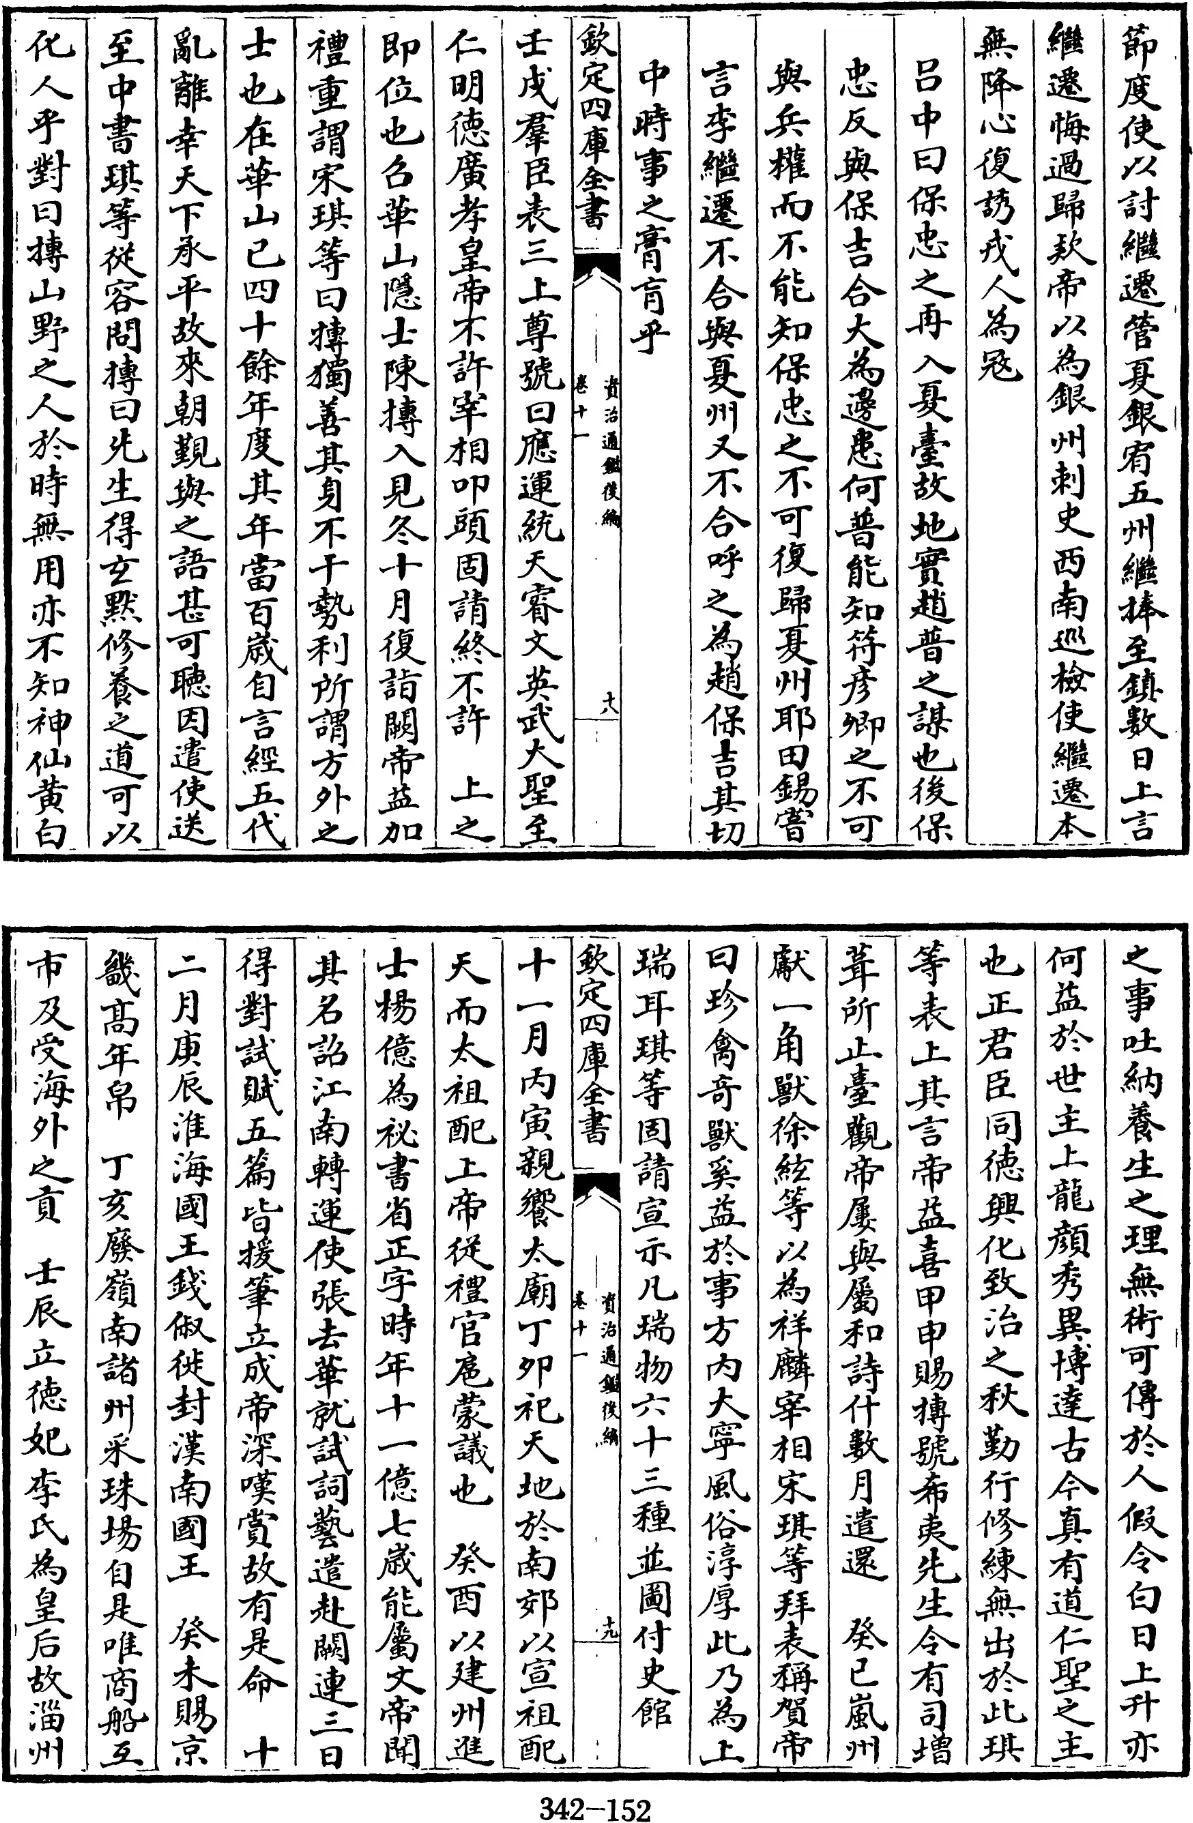 節度使以討繼遷管夏銀宥五州繼捧至鎮數日上言
繼遷悔過歸款帝以為銀州刺史西南巡檢使繼遷本
無降心復誘戎人為冦
呂中曰保忠之再入夏臺故地實趙普之謀也後保
忠反與保吉合大為邊患何普能知符彦卿之不可
與兵權而不能知保忠之不可復歸夏州耶田錫嘗
言李繼遷不合與夏州又不合呼之為趙保吉其切
中時事之膏肓乎
欽定四庫全書
資治通鑑後編
卷十一
十八
壬戌羣臣表三上尊號曰應運統天睿文英武大聖至
仁明徳廣孝皇帝不許宰相叩頭固請終不許　上之
即位也召華山隠士陳摶入見冬十月復詣闕帝益加
禮重謂宋琪等曰摶獨善其身不干勢利所謂方外之
士也在華山已四十餘年度其年當百歳自言經五代
亂離幸天下承平故來朝覲與之語甚可聴因遣使送
至中書琪等從容問摶曰先生得玄黙修養之道可以
化人乎對曰摶山野之人於時無用亦不知神仙黄白
之事吐納養生之理無術可傳於人假令白日上升亦
何益於世主上龍顔秀異博達古今真有道仁聖之主
也正君臣同徳興化致治之秋勤行修練無出於此琪
等表上其言帝益喜甲申賜摶號希夷先生令有司增
葺所止臺觀帝屢與屬和詩什數月遣還　癸巳嵐州
獻一角獸徐鉉等以為祥麟宰相宋琪等拜表稱賀帝
曰珍禽奇獸奚益於事方内大寧風俗淳厚此乃為上
瑞耳琪等固請宣示凡瑞物六十三種並圖付史館
欽定四庫全書
資治通鑑後編
卷十一
十九
十一月丙寅親饗太廟丁卯祀天地於南郊以宣祖配
天而太祖配上帝從禮官扈蒙議也　癸酉以建州進
士楊億為祕書省正字時年十一億七歳能屬文帝聞
其名詔江南轉運使張去華就試詞藝遣赴闕連三日
得對試賦五篇皆援筆立成帝深嘆賞故有是命　十
二月庚辰淮海國王錢俶徙封漢南國王　癸未賜京
畿髙年帛　丁亥廢嶺南諸州采珠場自是唯商船互
市及受海外之貢　壬辰立徳妃李氏為皇后故淄州
342-152